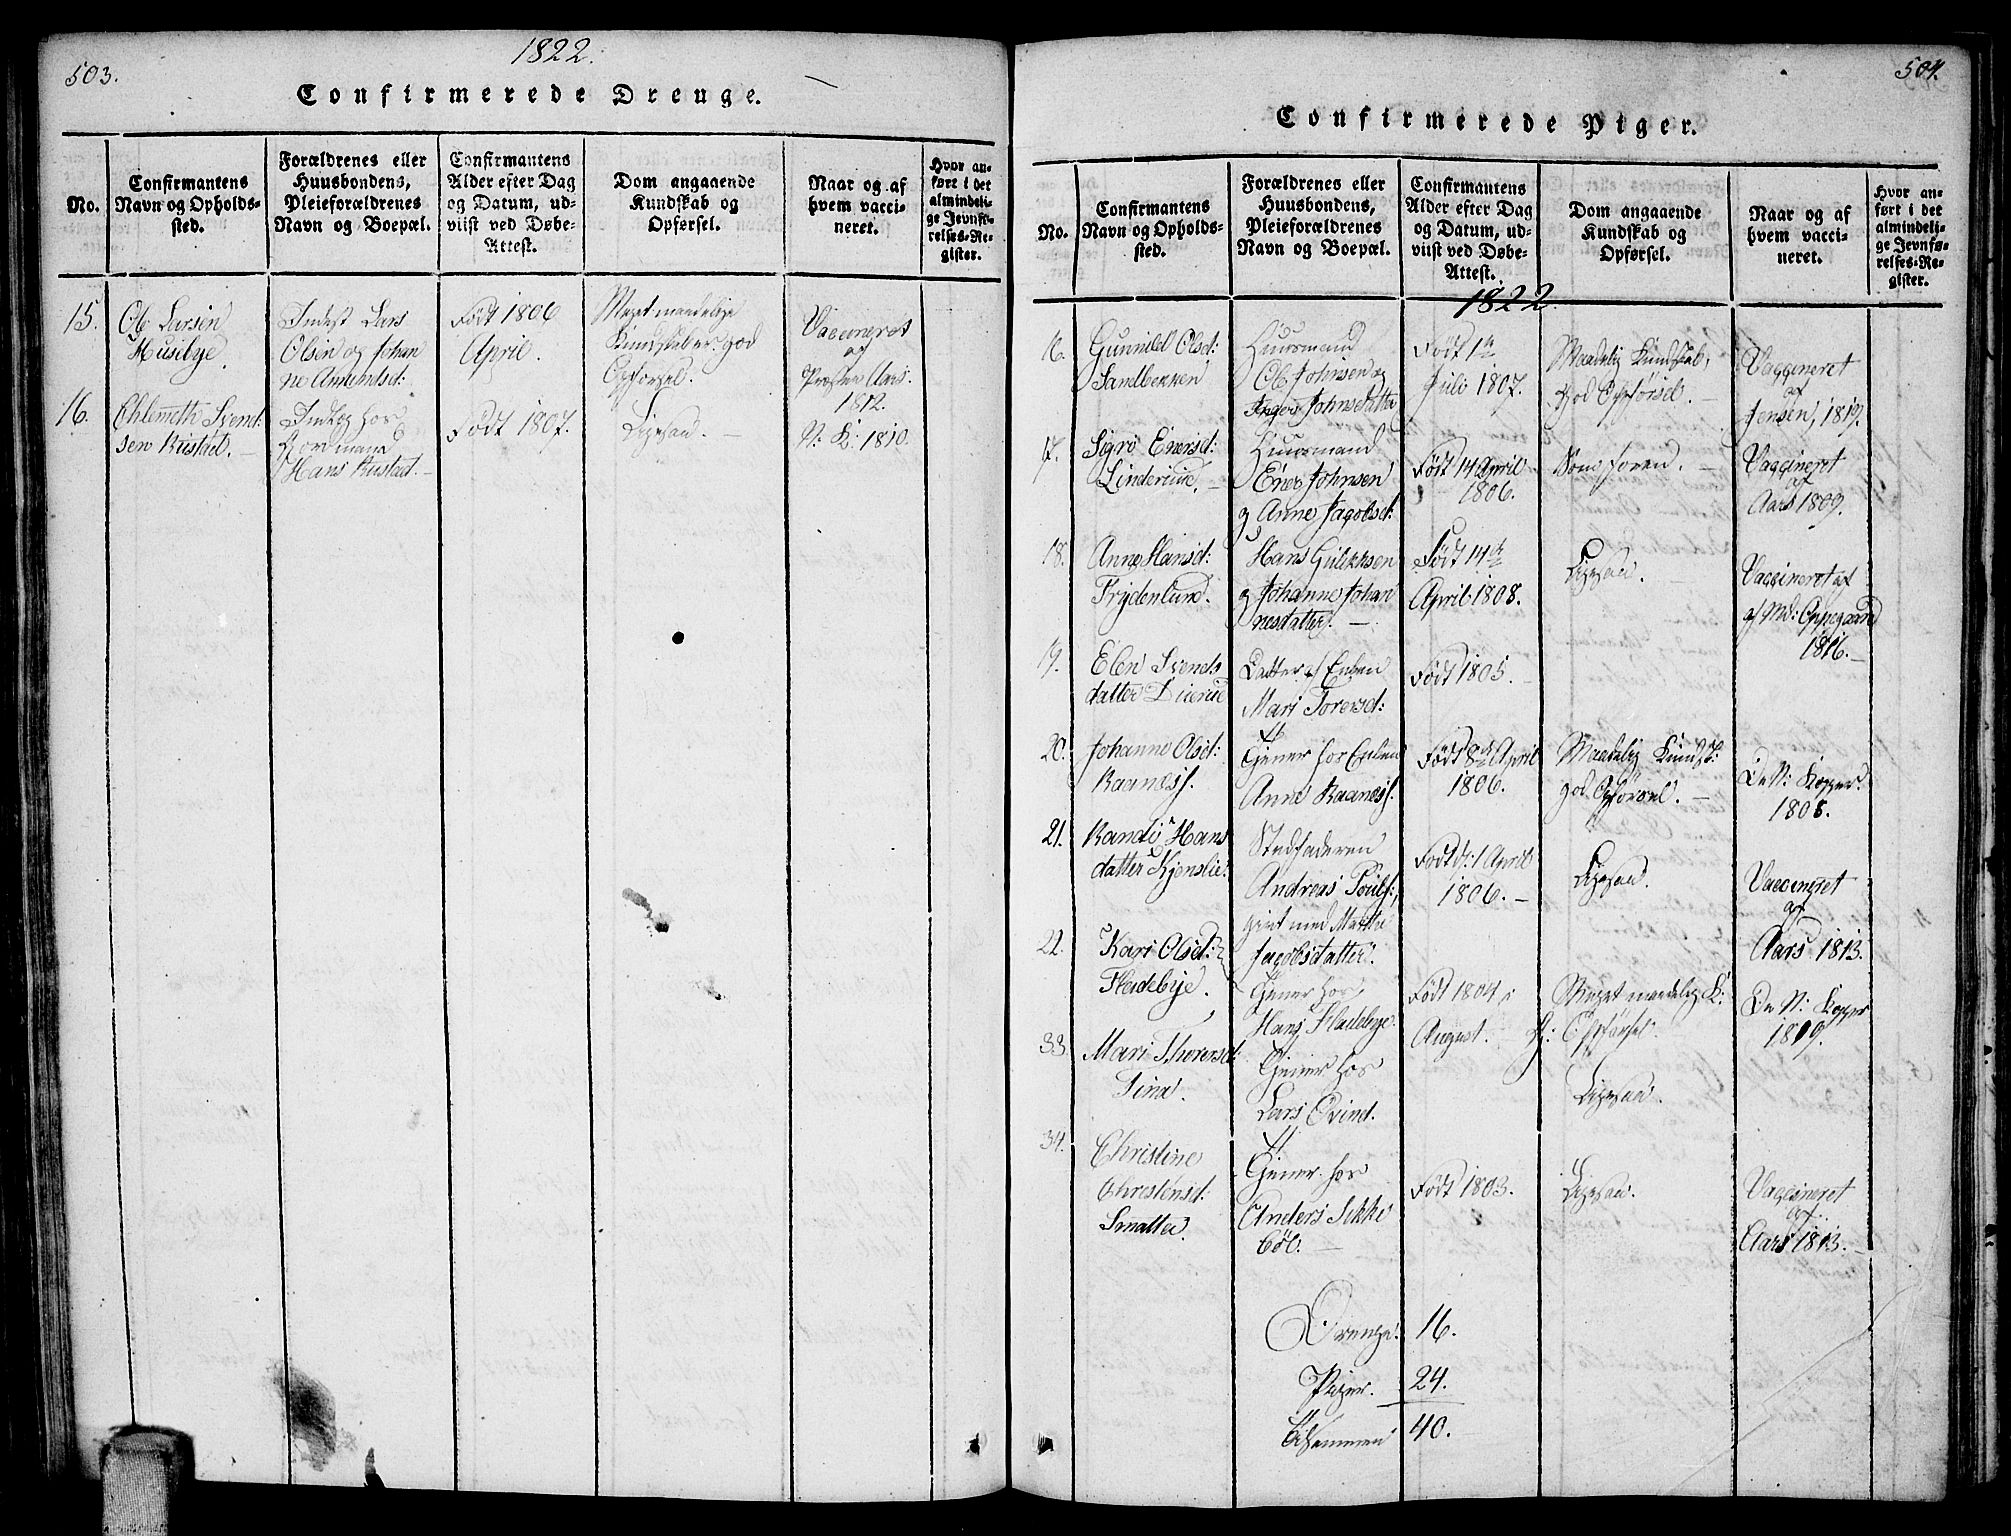 503.
1822.
Confirmerede Drenge.
No.
Confirmantens
Navn og Opholds-
sted.
Forældrenes eller
Huusbondens,
Pleieforældrenes
Navn og Boepæl.
Confirmantens
Alder efter Dag
og Datum, ud-
viist ved Døbe-
Attest.
Dom angaaende
Kundskab og
Opførsel.
Naar og af
hvem vacci-
neret.
Hvor an-
ført i det
almindeli-
ge Jevnfø-
relses-Re-
gister.
15.
Ole Larsen
Musebye.
Indest Lars
Olsen og Johan
ne Amundsd:
Født 1806
April.
Meget maadelige
Kundskaber god
Opførsel.
Vaccineret
af
Præsten Aars.
1812.
16.
Svend
sen Rustad.
Indleg hos
Gordmand
Hans Rustad.
Født 1807.
Ligesaa.
N: K: 1810.
504.
Confirmerede Piger.
No.
Confirmantens
Navn og Opholds-
sted.
Forældrenes eller
Huusbondens,
Pleieforældrenes
Navn og Boepæl.
Confirmantens
Alder efter Dag
og Datum, ud-
viist ved Døbe-
Attest.
Dom angaaende
Kundskab og
Opførsel.
Naar og af
hvem vacci-
neret.
Hvor an-
ført i det
almindeli-
ge Jevnfø-
relses-Re-
gister.
1822
16.
Gunnild Olsd:
Sandbekken
Huusmand
Ole Johnsen og
Inger Johnsdatter
Født 1te
Juli 1807.
Maadelig Kundskab,
god Opførsel.
Vaggineret
af
Jensen, 1819.
17.
Sigrø Enersd:
Linderud.
Huusmand
Ener Johnsen
og Anne Jagobsd:
Født 14 April
1806.
Som foren.
Vaggineret
af
Aars 1809.
18.
Anne Hansd:
Frydenlund.
Hans Gulikksen
og Johanne Johan
nesdatter.
Født 14de
April 1808.
Ligesaa.
Vaggineret af
af Md: Oppegaard
1816.
19.
Elen Svends
datter
Datter af Enken
Mari Torersd:
Født 1805.
20.
Johanne Olsd:
Raanesf.
Tjener hos Enken
Anne Raanesf.
Født 8de April
1806.
Maadelig Kundsk:
god Opførsel.
De N: Kopper
1808.
21.
Randi Hans
datter Kjenslie
Stedfaderen
Andreas Poulf:,
givt med Marthe
Jagobsdatter.
Født d: 1 April
1806.
Ligesaa.
Vaccineret
af
Aars 1813.
22.
Kari Olsd:
Fladebye.
Tjener hos
Hans Fladebye.
Født 1804 i
August.
Meget maadelig K:
G: Opførsel.
De N: Kopper
1819.
33.
Mari Thorersd:
Tjener hos
Lars Øvind.
Ligesaa.
34.
Christine
Christensd:
Smatter.
Tjener hos
Anders Sikke
böl.
Født 1803.
Ligesaa.
Vaggineret
af
Aars 1813.
Drenge: 16.
Piger. 24.
Tilsammen 40.